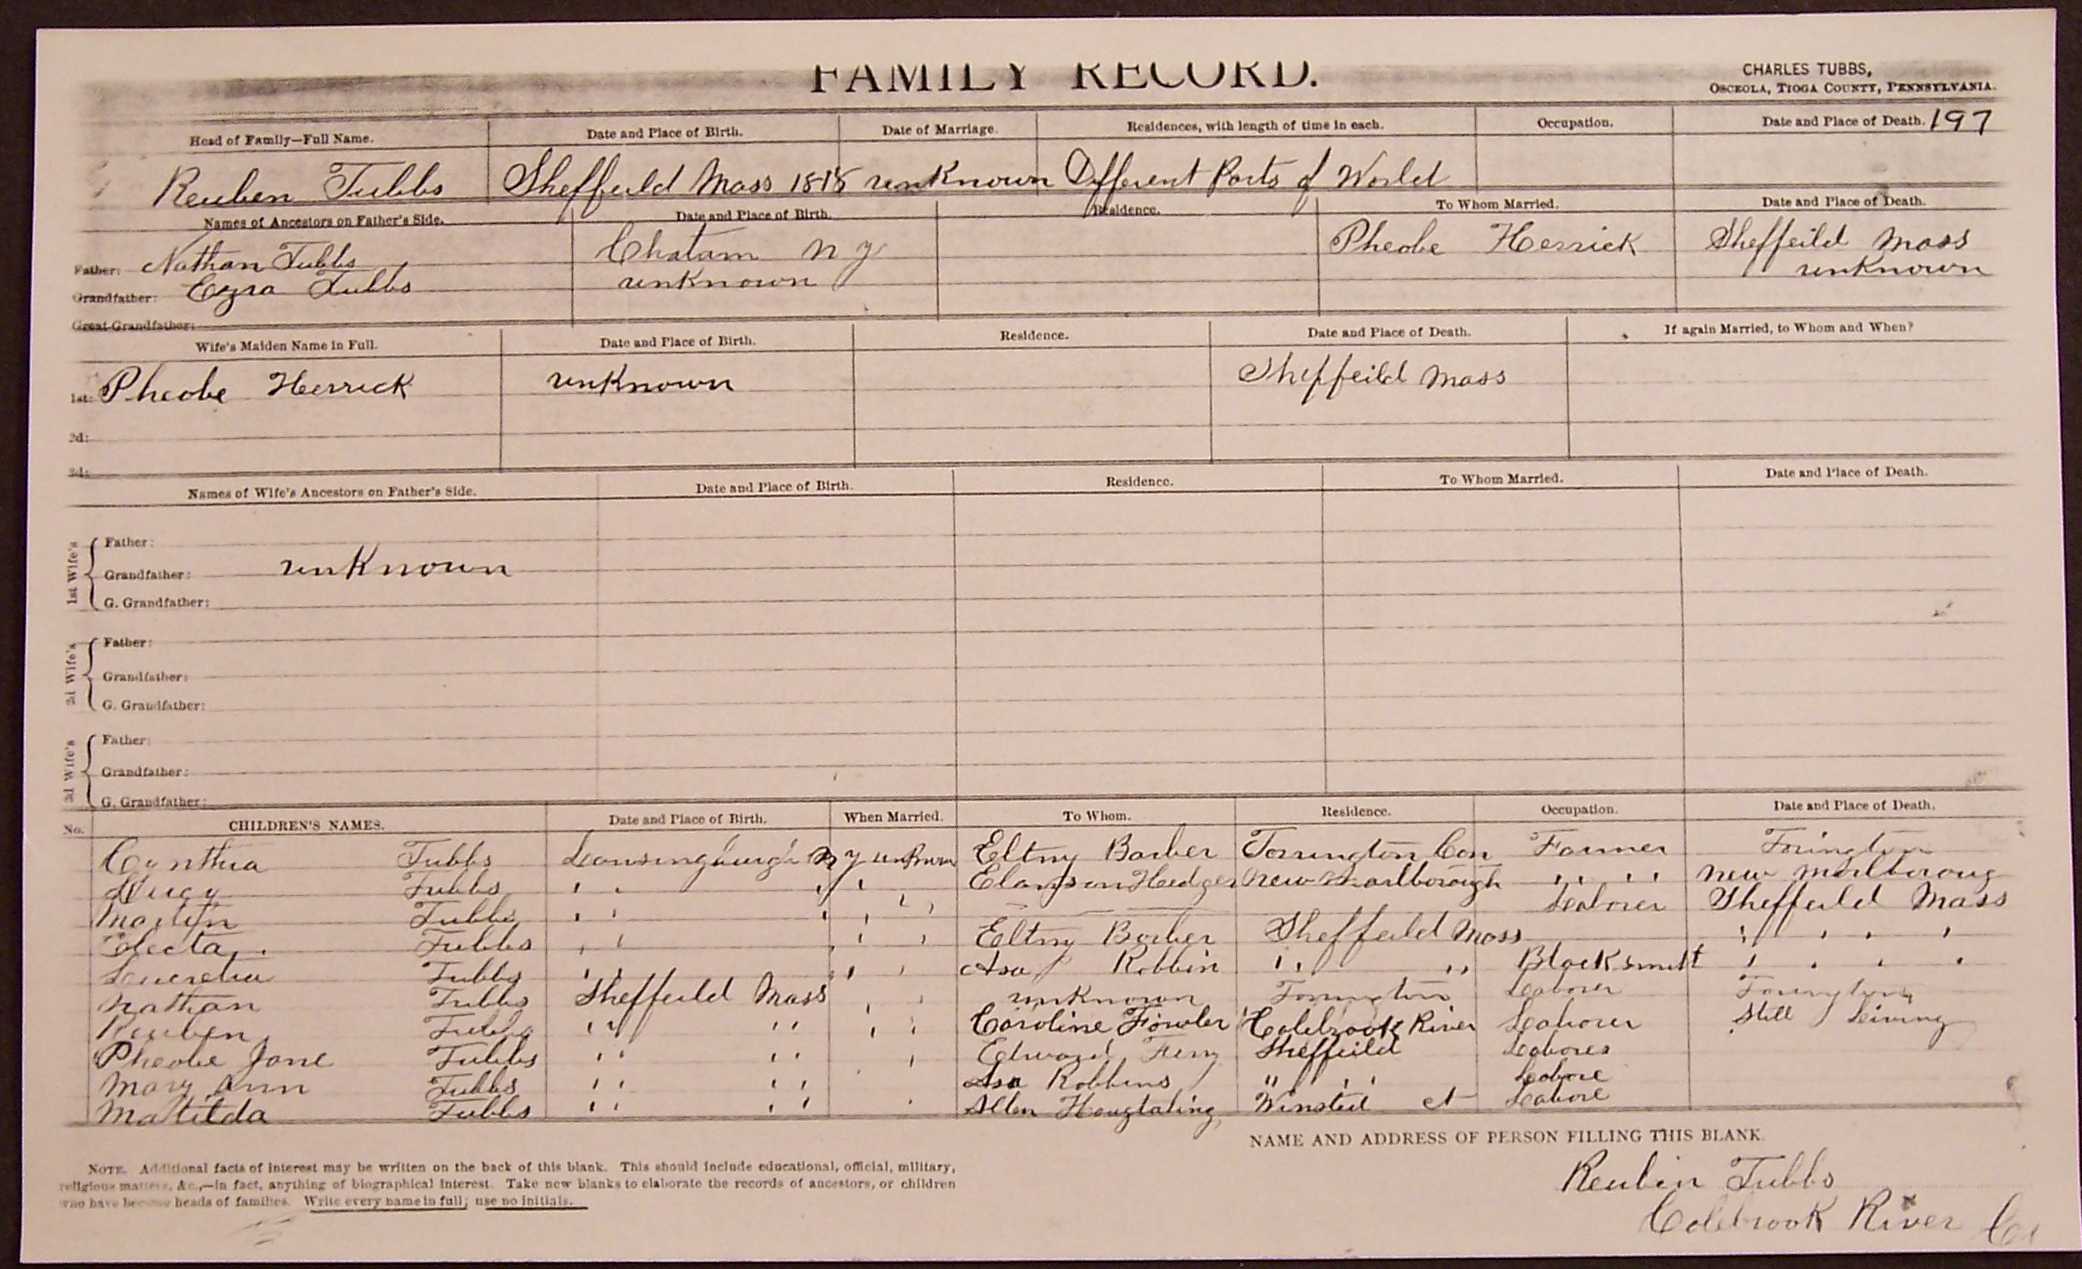 FAMILY RECORD.
CHARLES TUBBS,
OSCEOLA, TIOGA COUNTY, PENNSYLVANIA.
197
Head of Family—Full Name. Date and Place of Birth. Date of Marriage. Residences, with length of time in each. Occupation. Date and Place of Death.
Reuben Tubbs Sheffeild Mass 1818 unKnown Different Parts of World
Names of Ancestors on Father's Side. Date and Place of Birth. Residence. To Whom Married. Date and Place of Death.
Father: Nathan Tubbs Chatam N y Pheobe Herrick Sheffeild Mass
Grandfather: Ezra Tubbs unKnown unKnown
Great-Grandfather:
Wife's Maiden Name in Full. Date and Place of Birth. Residence. Date and Place of Death. If again Married, to Whom and When?
1st: Pheobe Herrick unKnown Sheffeild Mass
2d:
3d:
Names of Wife's Ancestors on Father's Side. Date and Place of Birth. Residence. To Whom Married. Date and Place of Death.
1st Wife's
Father:
Grandfather: unKnown
G. Grandfather:
2d Wife's
Father:
Grandfather:
G. Grandfather:
3d Wife's
Father:
Grandfather:
G. Grandfather:
No. CHILDREN'S NAMES. Date and Place of Birth. When Married. To Whom. Residence. Occupation. Date and Place of Death.
Cynthia Tubbs Lansingburgh N y unKnown Eltny Barber Torrington Con Farmer Torington
Lucy Tubbs " " " " Hedges New Marlborough " " " " New Marlboroug
Martyn Tubbs " " " " " Laborer Sheffeild Mass
Electa Tubbs " " " " " Eltny Barber Sheffeild Mass " " " "
Lucretia Tubbs " " " " " Asa Robbin " " " " BlackSmitt " " " "
Nathan Tubbs Sheffeild Mass " " unKnown Torrington Laborer Torington
Reuben Tubbs " " " " " " Caroline Fowler Colebrook River Laborer Still Leiving
Pheobe Jane Tubbs " " " " " Edward Ferry Sheffeild Laborer
Mary Ann Tubbs " " " " Asa Robbins " " " " Labore
Matilda Tubbs " " " " " Allen Hougtaling Winsted ct Labore
NAME AND ADDRESS OF PERSON FILLING THIS BLANK.
NOTE. Additional facts of interest may be written on the back of this blank. This should include educational, official, military,
religious matters, &c.,—in fact, anything of biographical interest. Take new blanks to elaborate the records of ancestors, or children
who have become heads of families. Write every name in full; use no initials.
Reubin Tubbs
Colebrook River Ct